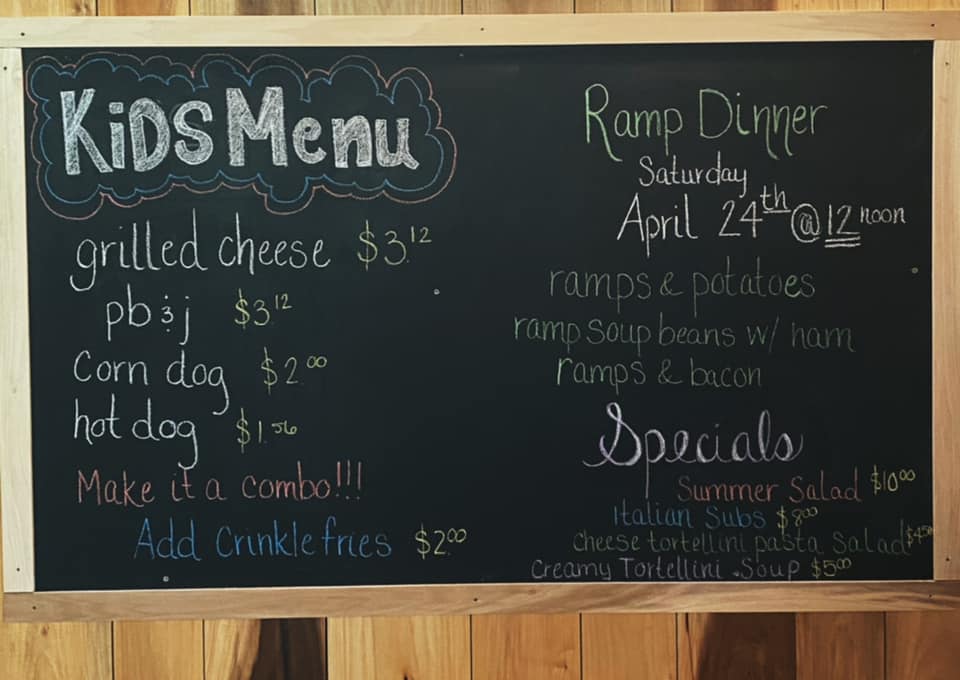 KiDS Menu
grilled cheese $3.12
pb & j $3.12
Corn dog $2.00
hot dog $1.56
Make it a combo!!!
Add Crinkle fries $2.00
Ramp Dinner
Saturday
April 24th @ 12 noon
ramps & potatoes
ramp soup beans w/ ham
ramps & bacon
Specials
Summer Salad $10.00
Italian Subs $8.00
Cheese tortellini pasta salad $4.50
Creamy Tortellini Soup $5.00